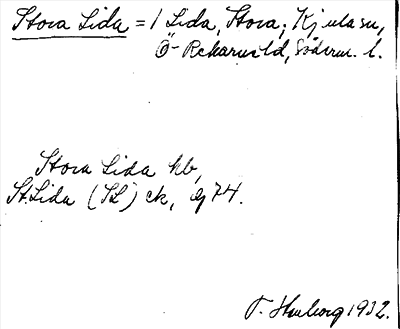 Stora Lida = 1 Lida, Stora; Kjulasn,
Ö-Rekarne hd, Söderm. l.
Stora Lida kb,
St. Lida (SL) ek, gj 74.
1932.